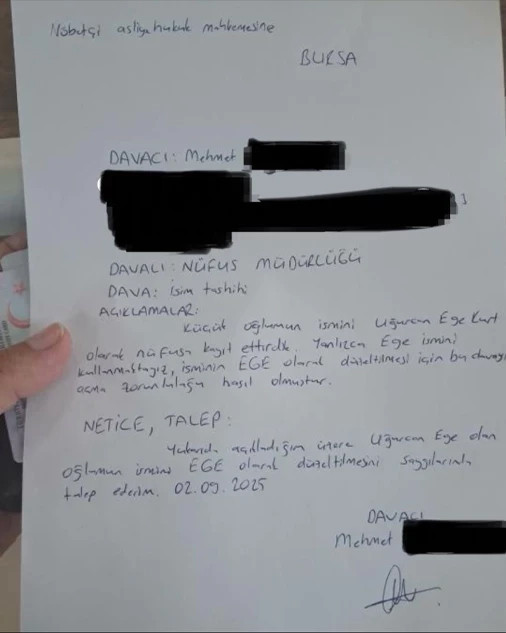 Nöbetçi asliye hukuk mahkemesine
BURSA
DAVACI: Mehmet
DAVALI: NÜFUS MÜDÜRLÜĞÜ
DAVA: isim tashihi
AÇIKLAMALAR:
Küçük oğlumun ismini Uğurcan Ege Kurt
olarak nüfusa kayıt ettirdik. Yanlızca Ege ismini
kullanmaktayız, isminin EGE olarak düzeltilmesi için bu davayı
açma zorunluluğu hasıl olmuştur.
NETİCE, TALEP:
Yukarıda açıkladığım üzere Uğurcan Ege olan
oğlumun ismini EGE olarak düzeltilmesini saygılarımla
talep ederim. 02.09.2025
DAVACI
Mehmet